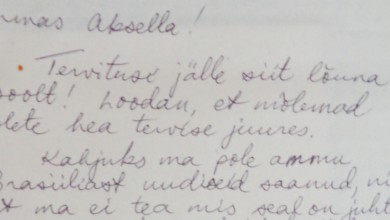 Aksella!
Tervitusi jälle siit lõuna
poolt! Loodan, et mõlemad
olete hea tervise juures.
Kahjuks ma pole ammu
Brasiiliast uudiseid saanud, ni
et ma ei tea mis seal on juht